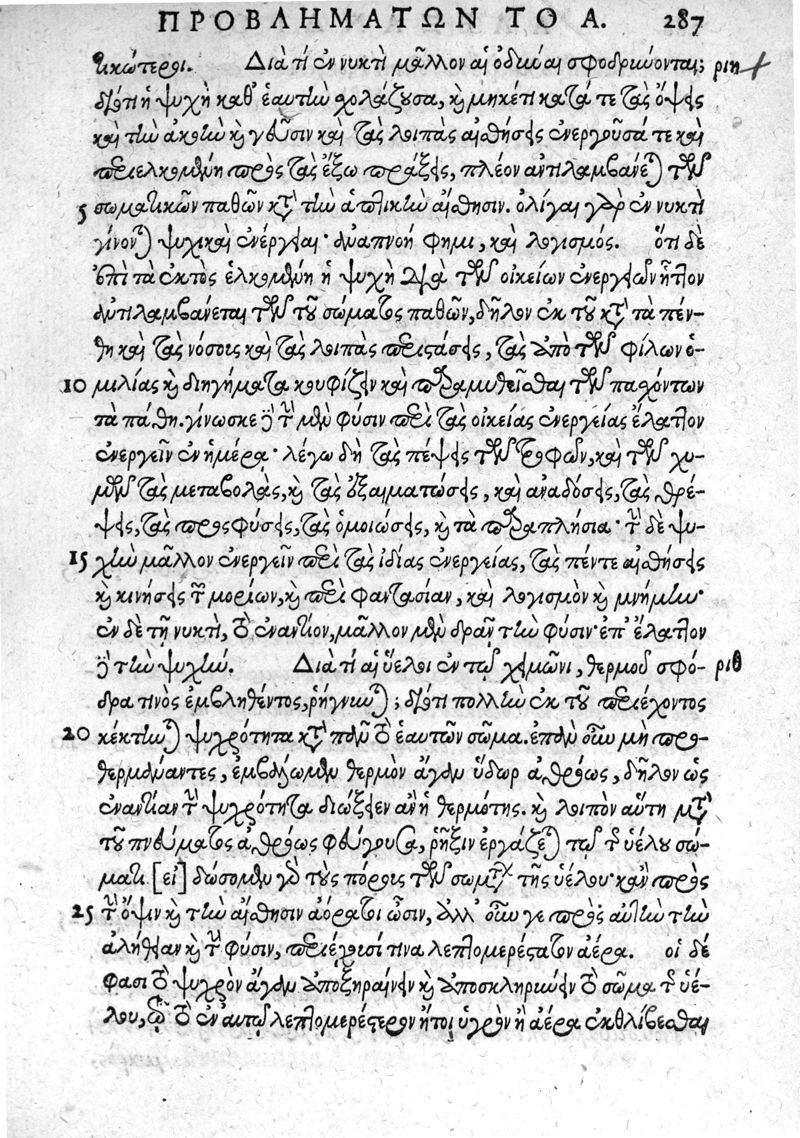 ΠΡΟΒΛΗΜΑΤΩΝ ΤΟ Α. 287
τικώτεροι. Διὰ τί ἐν νυκτὶ μᾶλλον αἱ ὀδύναι σφοδρύνονται; ριη
διότι ἡ ψυχὴ καθ' ἑαυτὴν σχολάζουσα, καὶ μηκέτι κατά τε τὰς ὄψεις
καὶ τὴν ἀκοὴν καὶ γεῦσιν καὶ τὰς λοιπὰς αἰσθήσεις ἐνεργοῦσά τε καὶ
περιελκομένη πρὸς τὰς ἔξω πράξεις, πλέον ἀντιλαμβάνεται τῶν
5 σωματικῶν παθῶν κατὰ τὴν ἁπτικὴν αἴσθησιν. ὀλίγαι γὰρ ἐν νυκτὶ
γίνονται ψυχικαὶ ἐνέργειαι· ἀναπνοή φημι, καὶ λογισμός. ὅτι δὲ
ἐπὶ τὰ ἐκτὸς ἑλκομένη ἡ ψυχὴ διὰ τῶν οἰκείων ἐνεργειῶν ἧττον
ἀντιλαμβάνεται τῶν τοῦ σώματος παθῶν, δῆλον ἐκ τοῦ κατὰ τὰ πέν-
θη καὶ τὰς νόσοις καὶ τὰς λοιπὰς περιστάσεις, τὰς ἀπὸ τῶν φίλων ὁ-
10 μιλίας καὶ διηγήματα κουφίζειν καὶ παραμυθεῖσθαι τῶν πασχόντων
τὰ πάθη. γίνωσκε δὲ τὴν μὲν φύσιν περὶ τὰς οἰκείας ἐνεργείας ἔλαττον
ἐνεργεῖν ἐν ἡμέρᾳ· λέγω δὴ τὰς πέψεις τῶν τροφῶν, καὶ τῶν χυ-
μῶν τὰς μεταβολὰς, καὶ τὰς ἐξαιματώσεις, καὶ ἀναδόσεις, τὰς θρέ-
ψεις, τὰς προςφύσεις, τὰς ὁμοιώσεις, καὶ τὰ παραπλήσια· τὴν δὲ ψυ-
15 χὴν μᾶλλον ἐνεργεῖν περὶ τὰς ἰδίας ἐνεργείας, τὰς πέντε αἰσθήσεις
καὶ κινήσεις τῶν μορίων, καὶ περὶ φαντασίαν, καὶ λογισμὸν καὶ μνήμην·
ἐν δὲ τῇ νυκτὶ, τὸ ἐναντίον, μᾶλλον μὲν δρᾶν τὴν φύσιν· ἐπ' ἔλαττον
δὲ τὴν ψυχήν. Διὰ τί αἱ ὕελοι ἐν τῷ χειμῶνι, θερμοῦ σφό- ριθ
δρα τινὸς ἐμβληθέντος, ῥήγνυνται; διότι πολλὴν ἐκ τοῦ περιέχοντος
20 κέκτηνται ψυχρότητα κατὰ πᾶν τὸ ἑαυτῶν σῶμα. ἐπὰν οὖν μὴ προ-
θερμάναντες, ἐμβάλωμεν θερμὸν ἄγαν ὕδωρ ἀθρόως, δῆλον ὡς
ἐναντίαν τὴν ψυχρότητα διώξειεν ἂν ἡ θερμότης. καὶ λοιπὸν αὕτη μετὰ
τοῦ πνεύματος ἀθρόως φεύγουσα, ῥῆξιν ἐργάζεται τῷ τοῦ ὑέλου σώ-
ματι [εἰ] δώσομεν γὰρ τοὺς πόροις τῶν σωμάτων τῆς ὑέλου· κἂν πρὸς
25 τὴν ὄψιν καὶ τὴν αἴσθησιν ἀόρατοι ὦσιν, ἀλλ' οὖν γε πρὸς αὐτὴν τὴν
ἀλήθειαν καὶ τὴν φύσιν, περιέχουσί τινα λεπτομερέστατον ἀέρα. οἱ δέ
φασι τὸ ψυχρὸν ἄγαν ἀποξηραίνειν καὶ ἀποσκληρύνειν τὸ σῶμα τοῦ ὑέ-
λου, ὥστε τὸ ἐν αὐτῷ λεπτομερέστερον ἤτοι ὑγρὸν ἢ ἀέρα ἐκθλίβεσθαι